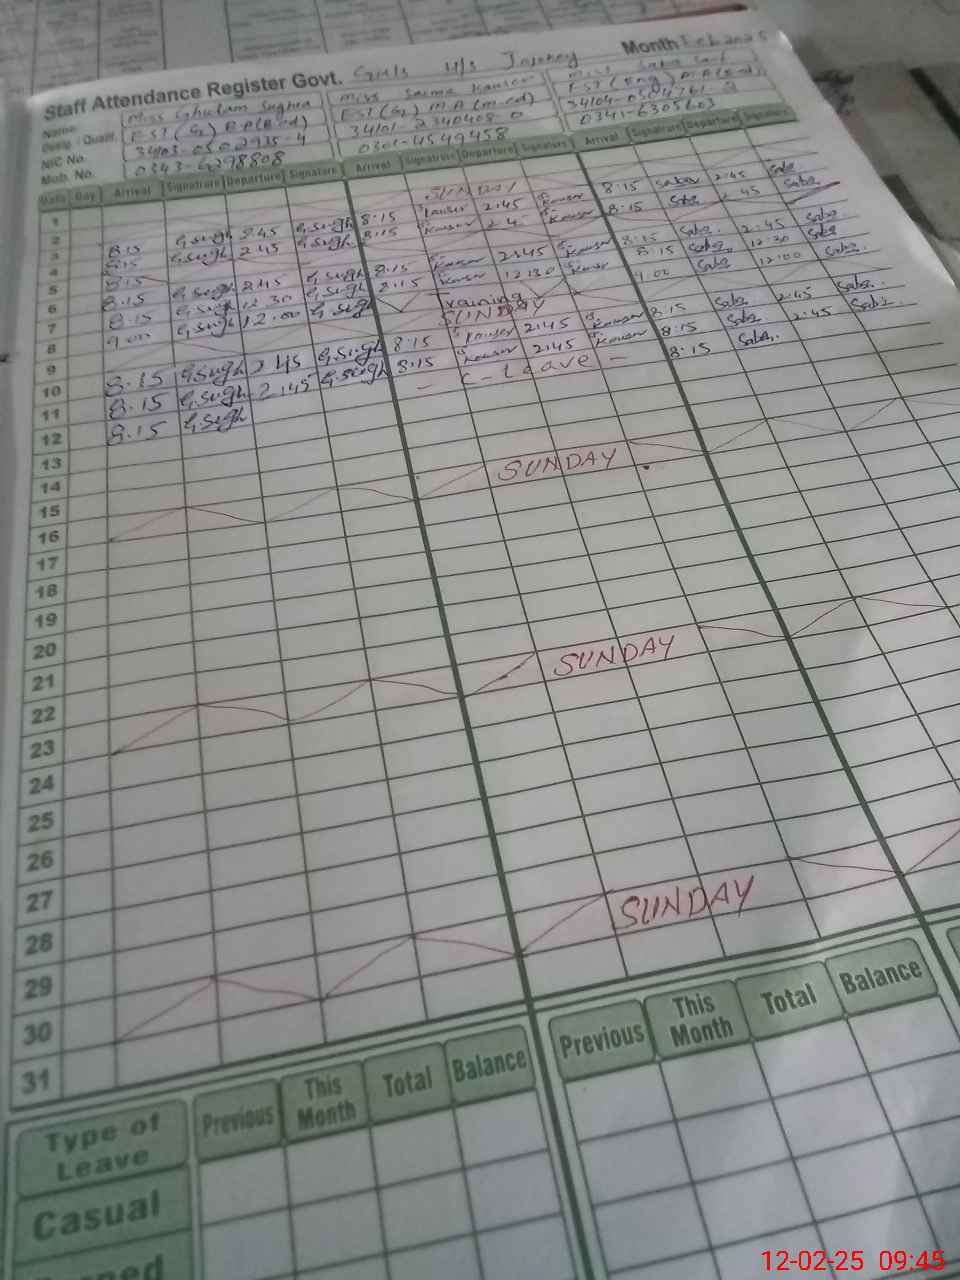 Staff Attendance Register Govt. Girls H/S Month Feb 2025
Name Miss Ghulam Sughra Miss Saima Kausar Miss Saba
Desig / Quali. EST (G) B.A(B.ed) EST (G) M A (m.ed) EST (Eng) M A (B.ed)
NIC No. 34103-0502935-4 34101-2340408-0
Mob. No. 0343-6298808 0301-4549458 0341-6305603
Date Day Arrival Signatrure Departure Signatrure Arrival Signatrure Departure Signatrure Arrival Signatrure Departure Signatrure
1
2 SUNDAY
3 8:15 G.Sugh 2:45 G.Sugh 8:15 Kausar 2:45 Kausar 8:15 Saba 2:45 Saba
4 8:15 G.Sugh 2:45 G.Sugh 8:15 Kausar 2:45 Kausar 8:15 Saba 2:45 Saba
5 8:15
6 8.15 G.Sugh 2:45 G.Sugh 8:15 Kausar 2:45 Kausar 8:15 Saba. 2:45 Saba.
7 8.15 G.Sugh 12.30 G.Sugh 8:15 Kausar 12:30 Kausar 8:15 Saba. 12:30 Saba
8 9.00 G.Sugh 12.00 G.Sugh Training 9.00 Saba 12:00 Saba.
9 SUNDAY
10 8.15 G.Sugh 2 45 G.Sugh 8:15 Kausar 2:45 Kausar 8:15 Saba. 2:45 Saba.
11 8.15 G.Sugh 2:45 G.Sugh 8:15 Kausar 2:45 Kausar 8:15 Saba. 2:45 Saba.
12 8.15 G.Sugh - C-Leave - 8:15 Saba.
13
14
15
16 SUNDAY
17
18
19
20
21
22
23 SUNDAY
24
25
26
27
28
29
30 SUNDAY
31
Type of Leave Previous This Month Total Balance Previous This Month Total Balance
Casual
12-02-25 09:45